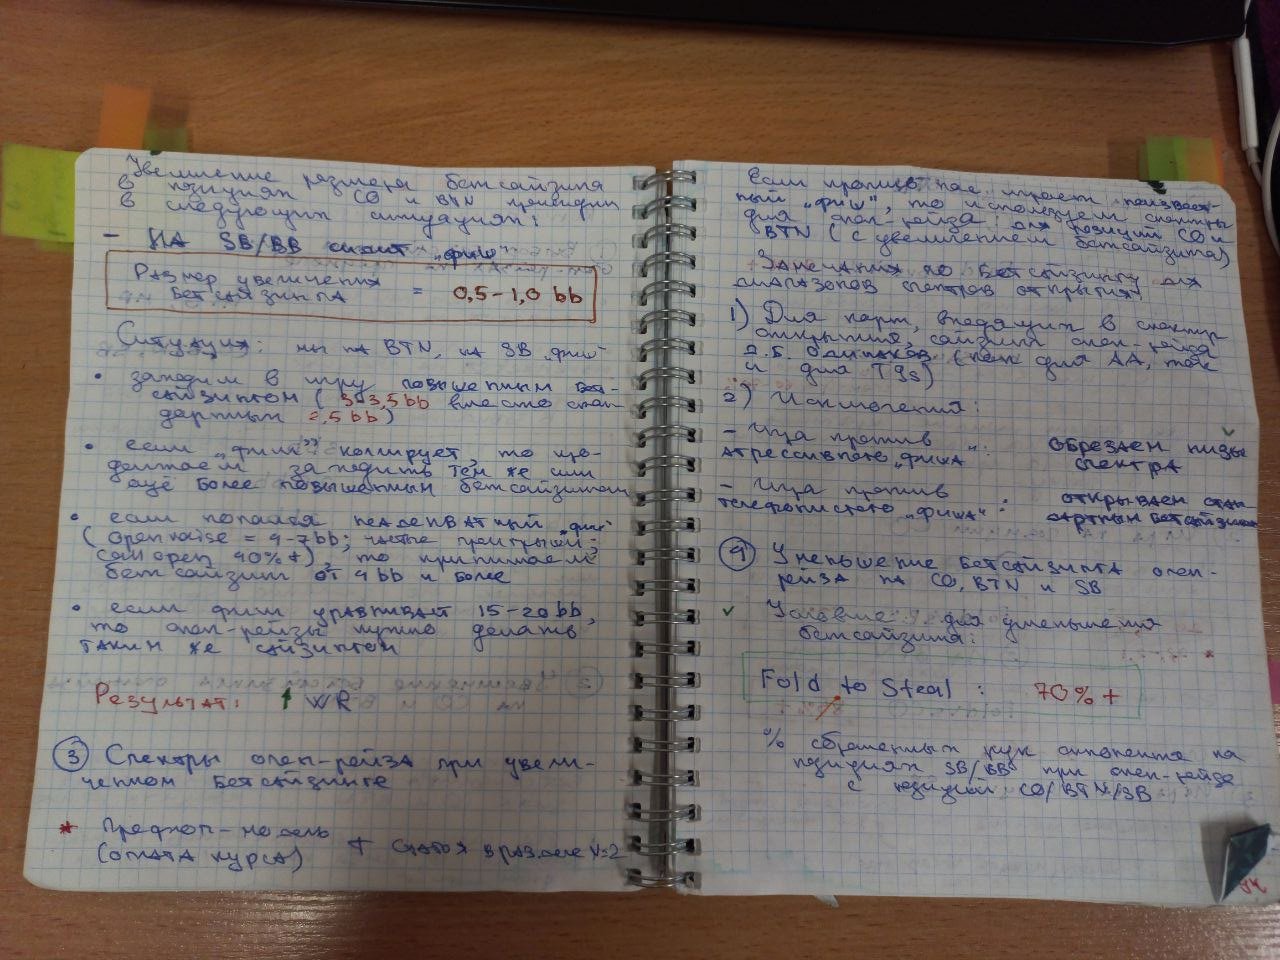 Увеличение размера бетсайзинга
в позициях CO и BTN приходим
в следующих ситуациях:
- НА SB/BB сидит „фиш"
Размер увеличения
бетсайзинга = 0,5-1,0 bb
Ситуация: мы на BTN, на SB „фиш"
• заходим в игру повышенным бет-
сайзингом (3-3,5 bb вместо стан-
дартных 2,5 bb)
• если „фиш" коллирует, то
заходить тем же или
ещё более повышенным бетсайзингом
• если попался неадекватный „фиш"
(open raise = 4-7 bb;
call open 40%+), то принимаем
бетсайзинг от 4 bb и более
• если фиш уравнивает 15-20 bb,
то опен-рейзы нужно делать
таким же сайзингом
Результат: ↑ WR
③ Спектры опен-рейза при увели-
ченном бетсайзинге
* Префлоп-модель
(оплата курса) + статья в разделе v=2
Если против нас играет неизвест-
ный „фиш", то используем спектры
для опен-рейза для позиций CO и
BTN (с увеличением бетсайзинга)
Замечания по бетсайзингу для
диапазонов спектров открытия
1) Для карт, входящих в спектр
открытия, сайзинг опен-рейза
д.б. одинаков (как для AA, так
и для T9s)
2) Исключения:
- Игра против
агрессивного „фиша": обрезаем низы
спектра
- Игра против
телефонистого „фиша": открываем стан-
дартным бетсайзингом
④ Уменьшение бетсайзинга опен-
рейза на CO, BTN и SB
✓ Условие для уменьшения
бетсайзинга:
Fold to Steal: 70% +
% сброшенных рук оппонента на
позициях SB/BB при опен-рейзе
с позиций CO/BTN/SB